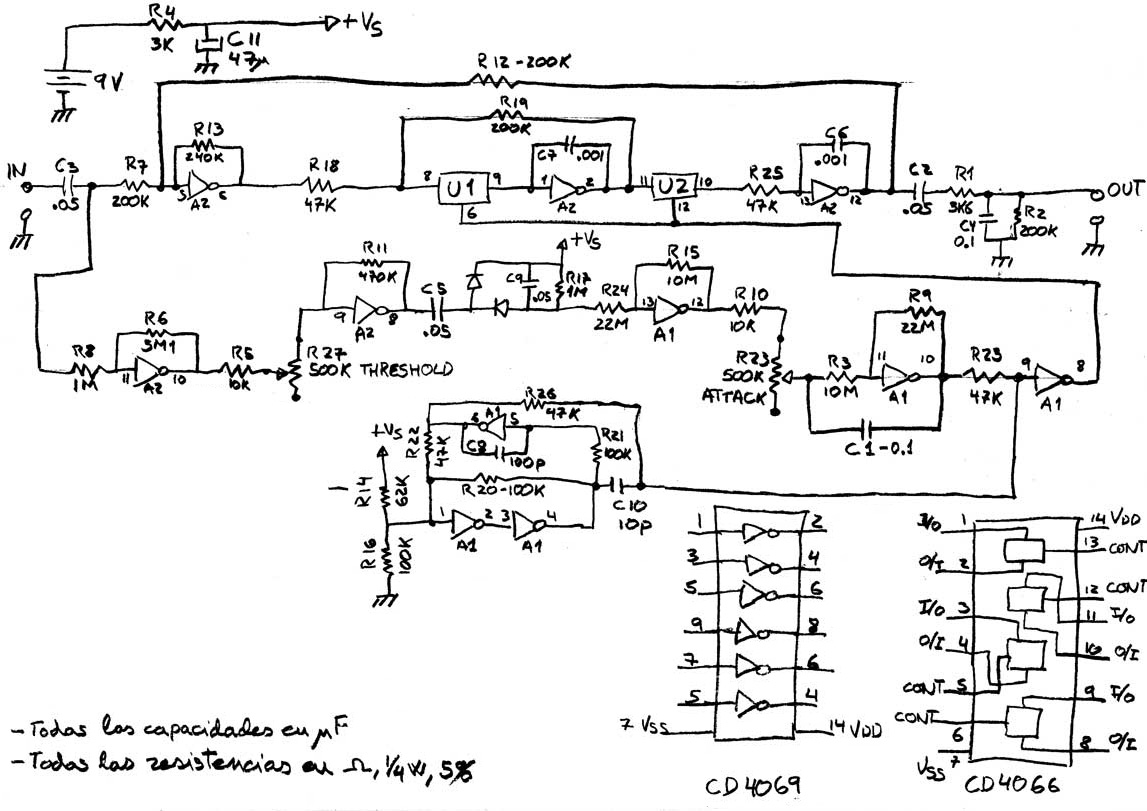 R4
3K
+Vs
C11
47µ
9V
R12-200K
R19
200K
R13
240K
C7 .001
C6
.001
IN
C3
.05
R7
200K
5
6
A2
R18
47K
8
U1
9
6
1
2
A2
11
U2
10
12
R25
47K
13
12
A2
C2
.05
R1
3K6
C4
0.1
R2
200K
OUT
R11
470K
9
8
A2
C5
.05
+Vs
C9
.05
R17
1M
R24
22M
R15
10M
13
12
A1
R10
10K
R9
22M
R8
1M
R6
5M1
11
10
A2
R5
10K
R27
500K THRESHOLD
R23
500K
ATTACK
R3
10M
11
10
A1
C1-0.1
R23
47K
9
8
A1
R26
47K
+Vs
R22
47K
6
A1
5
C8
100p
R21
100K
R20-100K
C10
10p
R14
62K
R16
100K
1
2
A1
3
4
A1
1
2
3
4
5
6
9
8
7
6
5
4
7 VSS
14 VDD
CD4069
I/O
1
14 VDD
13
CONT
O/I
2
12
CONT
11
I/O
I/O
3
O/I
4
10
O/I
CONT
5
9
I/O
CONT
6
8
O/I
VSS
7
CD4066
- Todas las capacidades en µF
- Todas las resistencias en Ω, 1/4 W, 5%